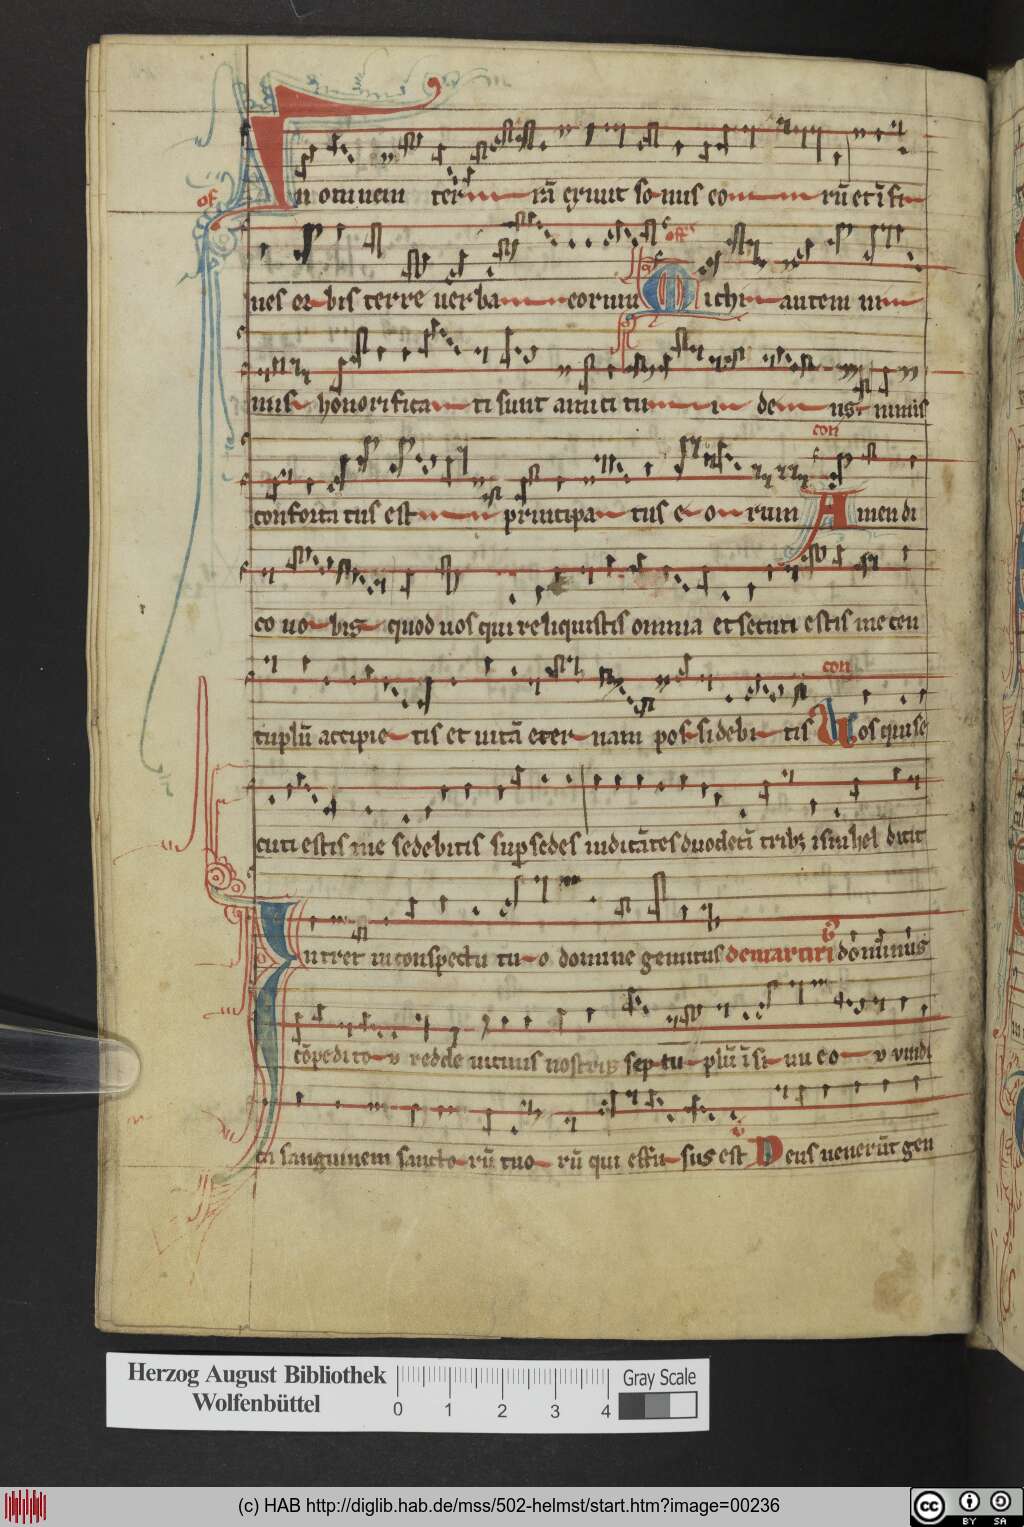 of
In omnem terram exivit sonus eorū et ī fi
nes orbis terre verba eorum off Michi autem ni
mis honorificati sunt amici tu i deus nimis
con
confortatus est principatus eorum Amen di
co vobis quod vos qui reliquistis omnia et secuti estis me cen
con
tuplū accipietis et vitā eternam possidebitis Vos qui se
cuti estis me sedebitis sup sedes iudicātes duodecī tribꝫ israhel dicit
Intret in conspectu tuo domine gemitus de martiribꝫ dominus
cōpeditorū redde vicinis nostris septuplū ī sinu eorū vindi
ca sanguinem sanctorū tuorū qui effusus est Deus venerūt gen
Herzog August Bibliothek
Wolfenbüttel
0 1 2 3 4
Gray Scale
(c) HAB http://diglib.hab.de/mss/502-helmst/start.htm?image=00236
cc BY SA